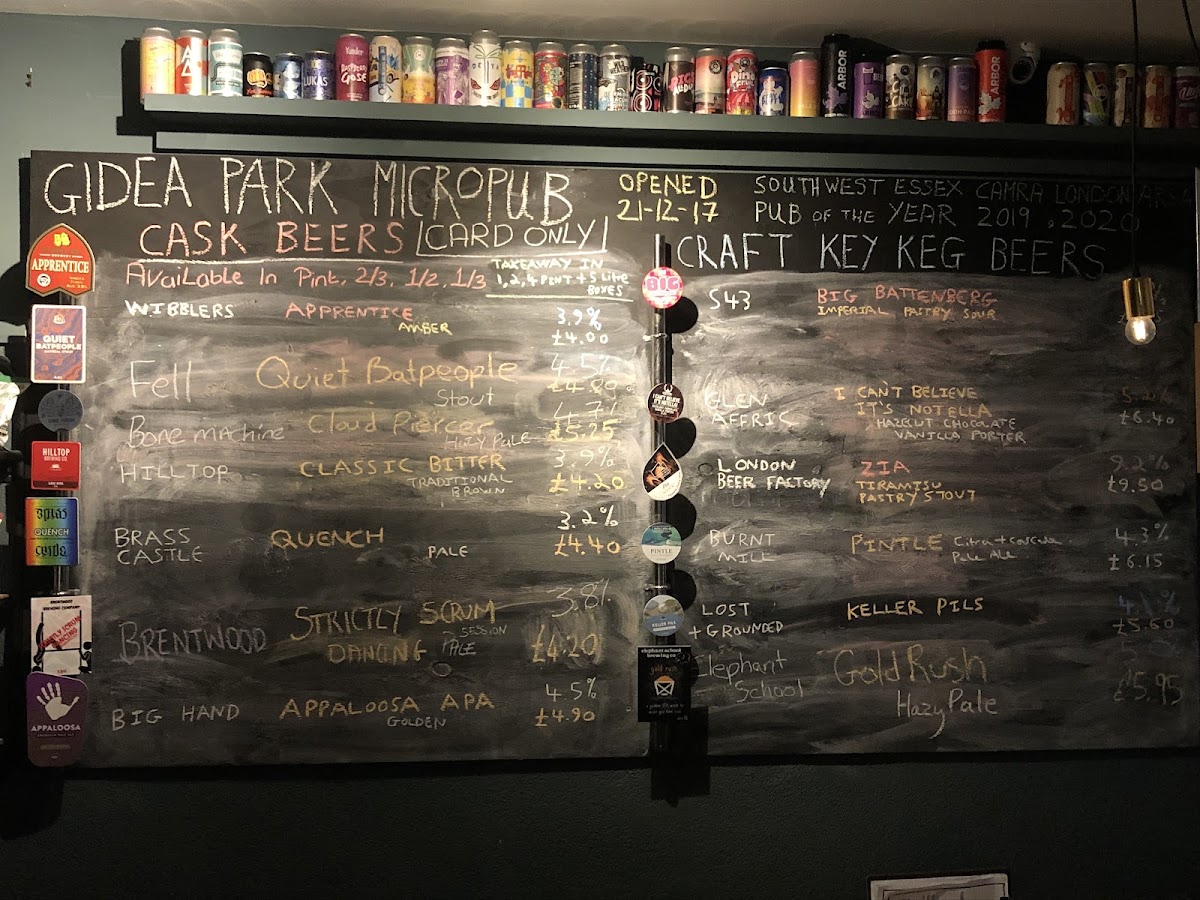 GIDEA PARK MICROPUB
OPENED
21-12-17
SOUTH WEST ESSEX CAMRA LONDON
PUB OF THE YEAR 2019, 2020
CASK BEERS (CARD ONLY)
Available In Pint, 2/3, 1/2, 1/3
TAKEAWAY IN
1, 2, 4 PINT + 5 Litre
BOXES
WIBBLERS APPRENTICE 3.9%
AMBER £4.00
Fell Quiet Batpeople 4.5%
Stout
Bone machine Cloud Piercer 4.7%
Hazy Pale £5.25
HILLTOP CLASSIC BITTER 3.9%
TRADITIONAL £4.20
BROWN
BRASS QUENCH 3.2%
CASTLE PALE £4.40
BRENTWOOD STRICTLY SCRUM 3.8%
DANCING SESSION
PALE £4.20
BIG HAND APPALOOSA APA 4.5%
GOLDEN £4.90
CRAFT KEY KEG BEERS
S43 BIG BATTENBERG
IMPERIAL PASTRY SOUR
GLEN I CAN'T BELIEVE
AFFRIC IT'S NOTELLA £6.40
HAZELNUT CHOCOLATE
VANILLA PORTER
LONDON ZIA 9.2%
BEER FACTORY TIRAMISU £9.50
PASTRY STOUT
BURNT PINTLE Citra + cascade 4.3%
MILL Pale Ale £6.15
LOST KELLER PILS
+ GROUNDED £5.60
Elephant Gold Rush
School Hazy Pale £5.95
APPRENTICE
QUIET
BATPEOPLE
HILLTOP
BREWING CO.
QUENCH
APPALOOSA
BIG
PINTLE
KELLER PILS
elephant school
brewing co
gold rush
Yonder
RASPBERRY
GOSE
LUKAS
ARBOR
ARBOR